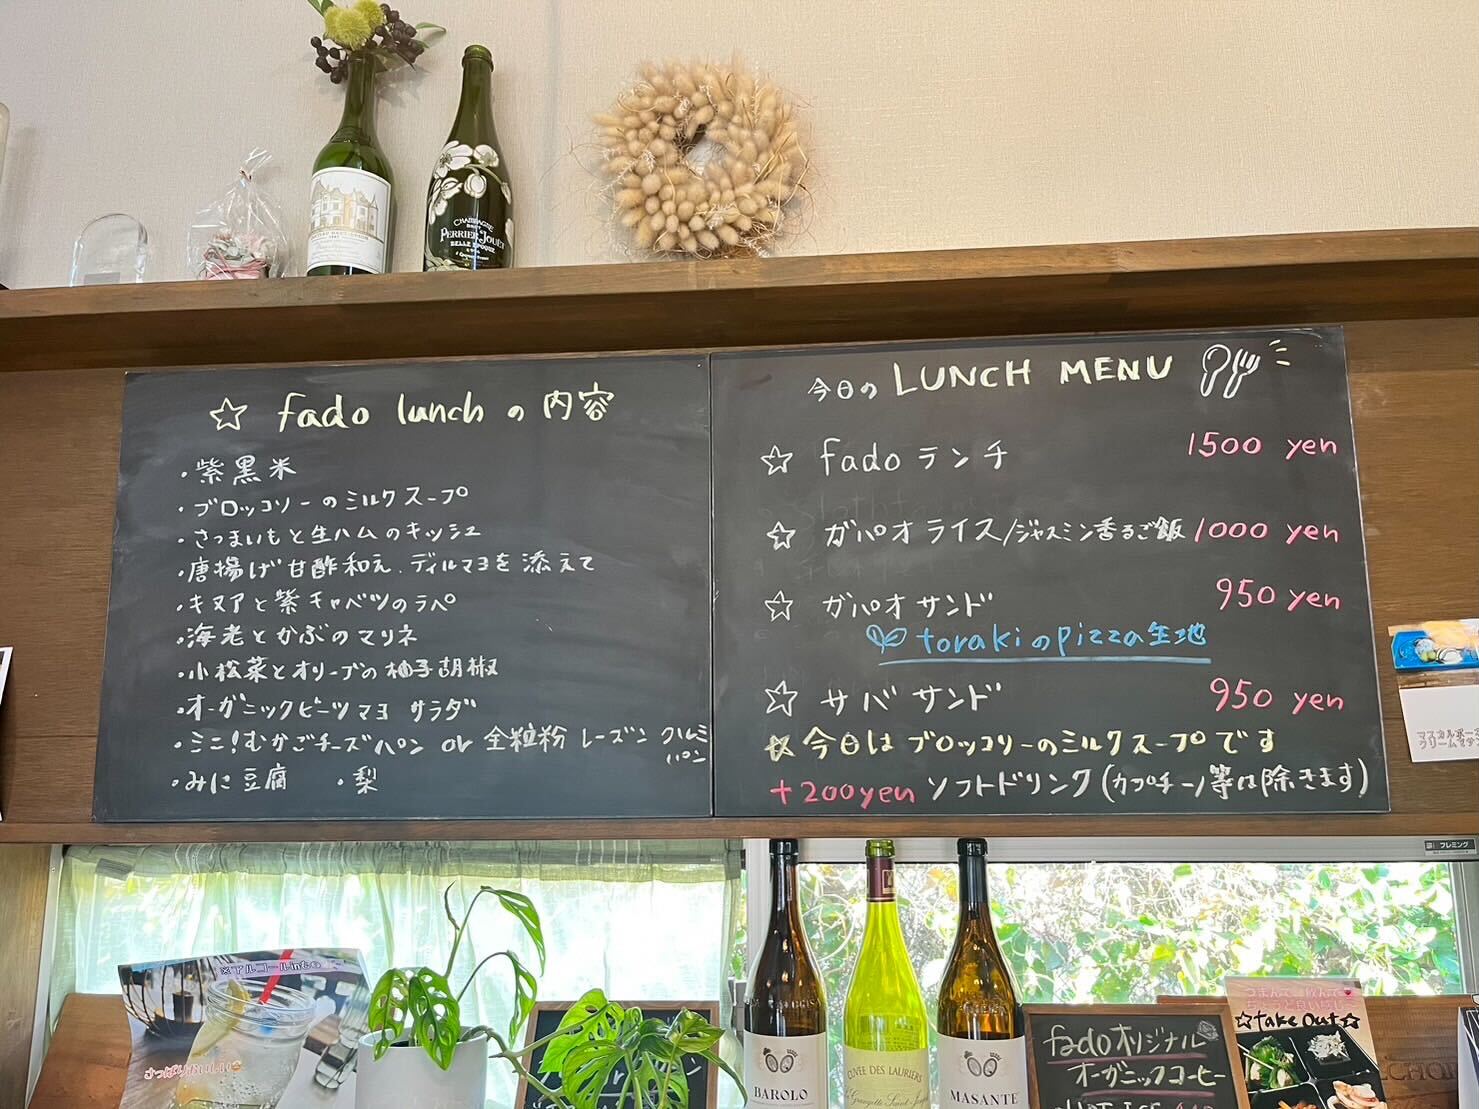 CHAMPAGNE
BRUT
PERRIER-JOUËT
BELLE EPOQUE
☆ fado lunch の内容
・紫黒米
・ブロッコリーのミルクスープ
・さつまいもと生ハムのキッシュ
・唐揚げ甘酢和え、ディルマヨを添えて
・キヌアと紫キャベツのラペ
・海老とかぶのマリネ
・小松菜とオリーブの柚子胡椒
・オーガニックビーツマヨサラダ
・ミニ!むかごチーズパン or 全粒粉レーズンクルミパン
・みに豆腐 ・梨
今日の LUNCH MENU
☆ fadoランチ 1500 yen
☆ ガパオライス/ジャスミン香るご飯 1000 yen
☆ ガパオサンド 950 yen
torakiのpizza生地
☆ サバサンド 950 yen
☆ 今日はブロッコリーのミルクスープです
+200yen ソフトドリンク(カプチーノ等は除きます)
フレミング
※アルコールinもの
さっぱりおいしい
BAROLO
CUVÉE DES LAURIERS
MASANTE
fadoオリジナル
オーガニックコーヒー
☆take out☆